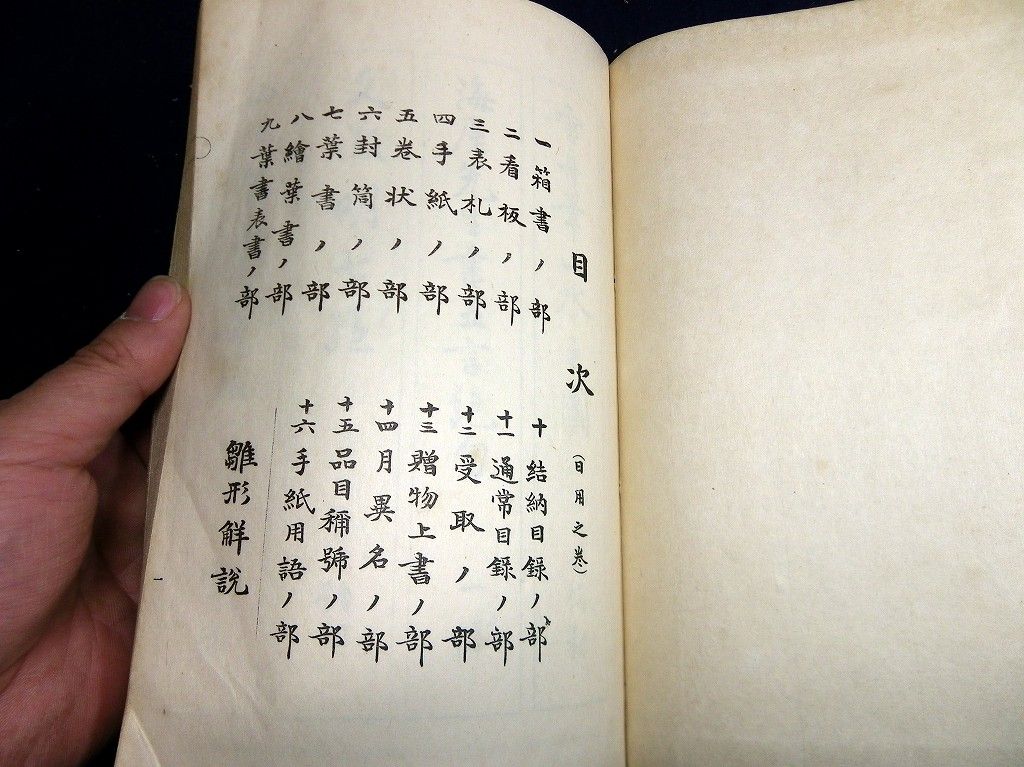 目次（日用之巻）
一箱書ノ部
二看板ノ部
三表札ノ部
四手紙ノ部
五巻状ノ部
六封筒ノ部
七葉書ノ部
八繪葉書ノ部
九葉書表書ノ部
十結納目録ノ部
十一通常目録ノ部
十二受取ノ部
十三贈物上書ノ部
十四月異名ノ部
十五品目稱號ノ部
十六手紙用語ノ部
雛形解説
一